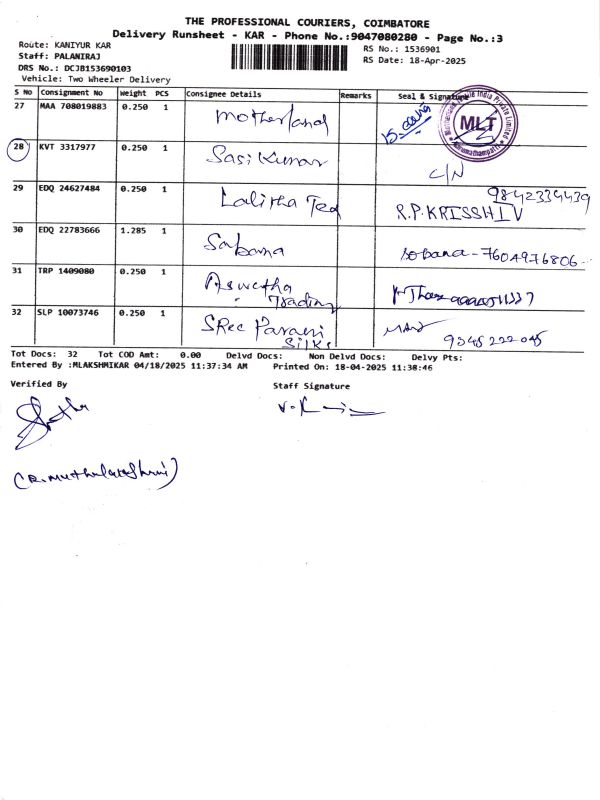 THE PROFESSIONAL COURIERS, COIMBATORE
Delivery Runsheet - KAR - Phone No.:9047080280 - Page No.:3
Route: KANIYUR KAR
RS No.: 1536901
Staff: PALANIRAJ
RS Date: 18-Apr-2025
DRS No.: DCJB153690103
Vehicle: Two Wheeler Delivery
S No Consignment No Weight PCS Consignee Details Remarks Seal & Signature
27 MAA 708019883 0.250 1 Motherland MLT
28 KVT 3317977 0.250 1 Sasi Kumar C/N
29 EDQ 24627484 0.250 1 Lalitha Tex 9842334439
R.P.KRISSHIV
30 EDQ 22783666 1.285 1 Sobana sobana-7604976806
31 TRP 1409080 0.250 1 Aswetha
Trading
32 SLP 10073746 0.250 1 SRee Parani
Silks 9345222045
Tot Docs: 32 Tot COD Amt: 0.00 Delvd Docs: Non Delvd Docs: Delvy Pts:
Entered By :MLAKSHMIKAR 04/18/2025 11:37:34 AM Printed On: 18-04-2025 11:38:46
Verified By
Staff Signature